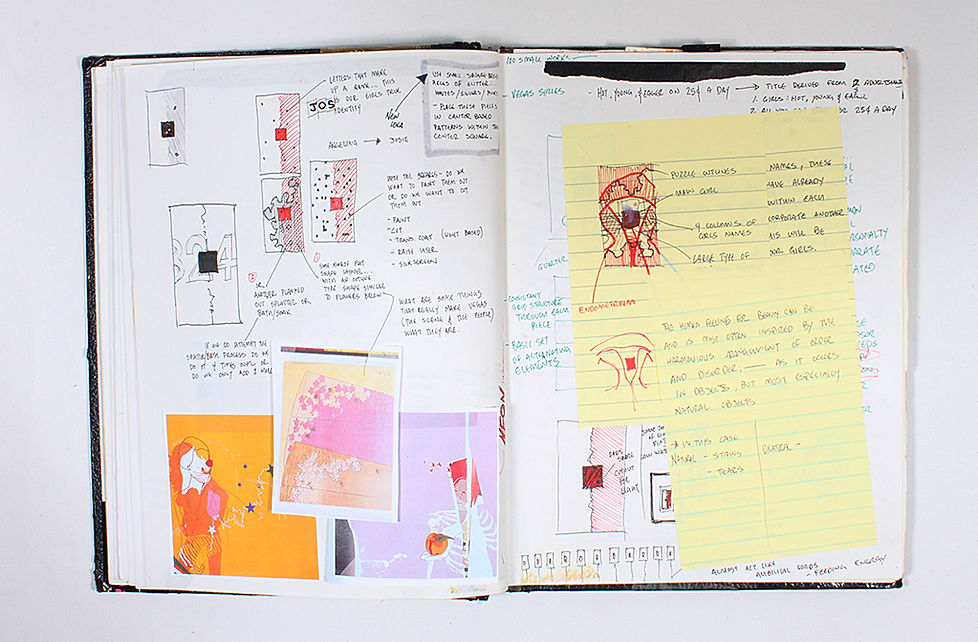 LETTERS THAT MAKE
UP A NAME... THIS
IS OUR GIRLS TRUE
IDENTITY
JOS
ANGELINA → JOSIE
NEW
IDEA
USE SMALL SQUARE
OF GLITTER...
WHITES/SILVERS/
- PLACE THESE PIECES
IN CANTOR BASED
PATTERNS WITHIN THE
CENTER SQUARE.
WITH THE SQUARES - DO WE
WANT TO PAINT THEM OUT
OR DO WE WANT TO CUT
THEM OUT
- PAINT
- CUT
- TRANS. COAT (LIGHT BASED)
- RAISE LASER
- SILKSCREEN
324
①
SOME KIND OF FLAT
SHAPE LAYOUT...
WITH AN OUTLINE
TYPE SHAPE SIMILAR
TO FLOWERS BELOW
②
OR
ANOTHER PLANNED
OUT SPLATTER OR
BATH/SOAK
WHAT ARE SOME THINGS
THAT REALLY MAKE VEGAS
(THE SCENE & THE PEOPLE)
WHAT THEY ARE.
IF WE DO ATTEMPT THE
PROCESS DO WE
DO IT 4 TIMES OVER OR
DO WE ONLY ADD 2 MORE
NEON
100 SMALL WORKS
- VEGAS SERIES
- HOT, YOUNG, & EAGER ON 25¢ A DAY → TITLE DERIVED FROM 2
1. GIRLS: HOT, YOUNG & EAGER
2. ALL YOU 25¢ A DAY
PUZZLE OUTLINES
MAIN GIRL
4 COLUMNS OF
GIRLS NAMES
LARGE TYPE OF
NAMES, THESE
HAVE ALREADY
WITHIN EACH
CORPORATE ANOTHER
HIS WILL BE
OUR GIRLS.
QUARTER
ENDOMETRIUM
- CONSISTANT
GRID STRUCTURE
THROUGH EACH
PIECE
- BASIC SET
OF ALTERNATING
ELEMENTS
THE HUMAN FEELING FOR BEAUTY CAN BE
AND IS MOST OFTEN INSPIRED BY THE
HARMONIOUS ARRANGMENT OF ORDER
AND DISORDER, — AS IT OCCURS
IN OBJECTS, BUT MOST ESPECIALLY
NATURAL OBJECTS
* IN THIS CASE
NATURAL - STAINS
- TEARS
UNATRAL -
DARK
SQUARE
CUTOUT
FOR
LIGHT
ALMOST ACT LIKE
UMBILICAL CORDS
- FEEDING ENERGY